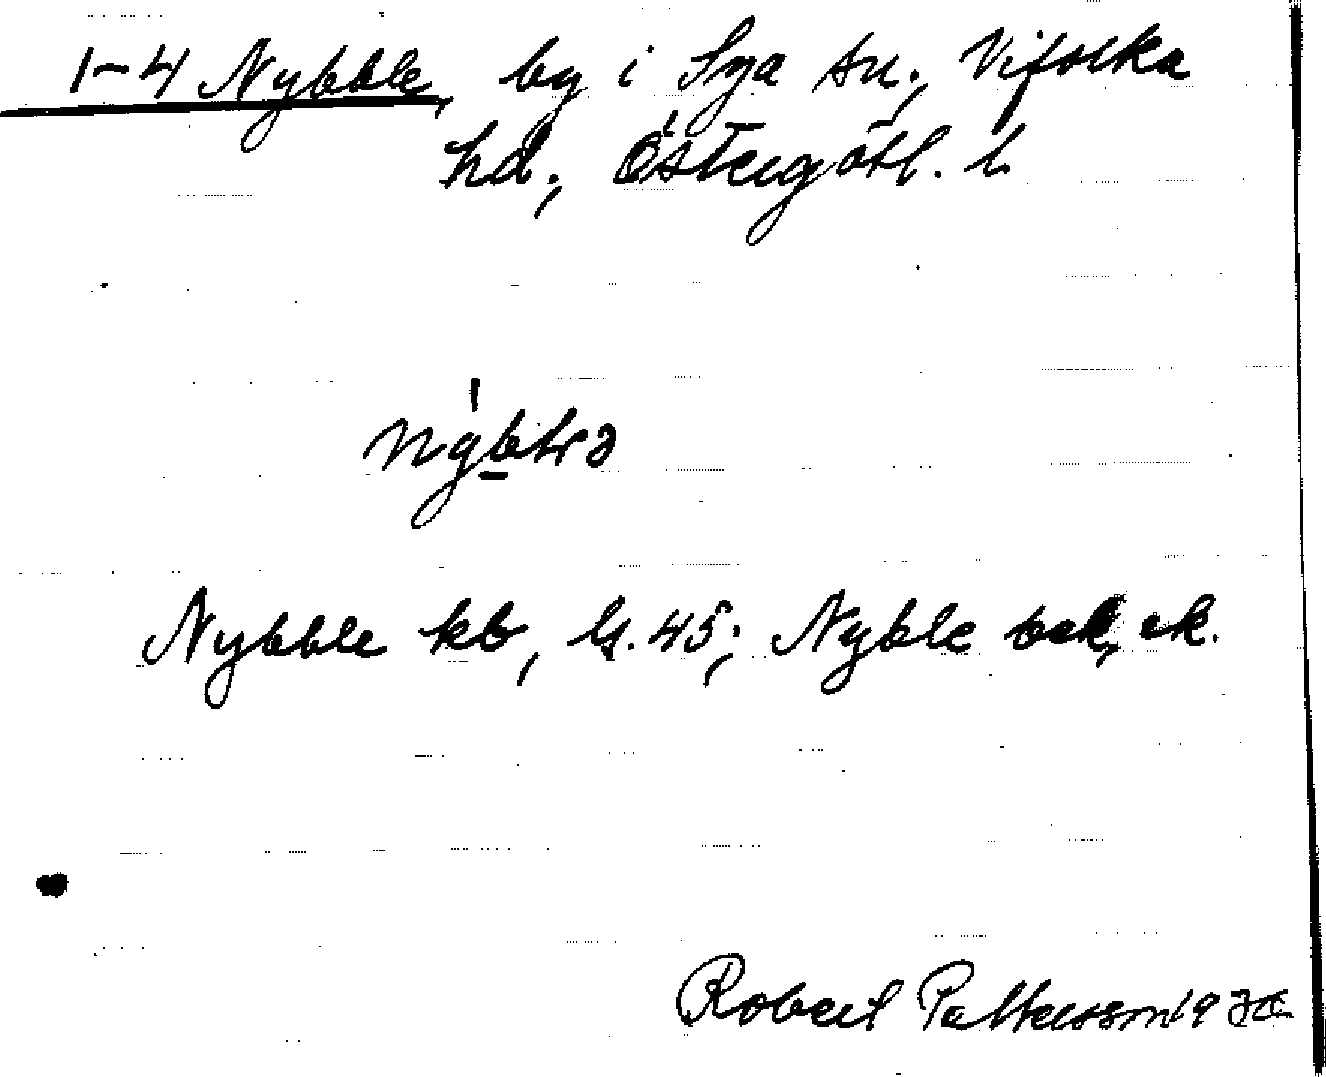 1-4 Nybble, by i Sya sn., Vifolka
hd., Östergötl. l.
Nybble kb, G. 45; Nyble bek, ek.
Robert Pettersson 19